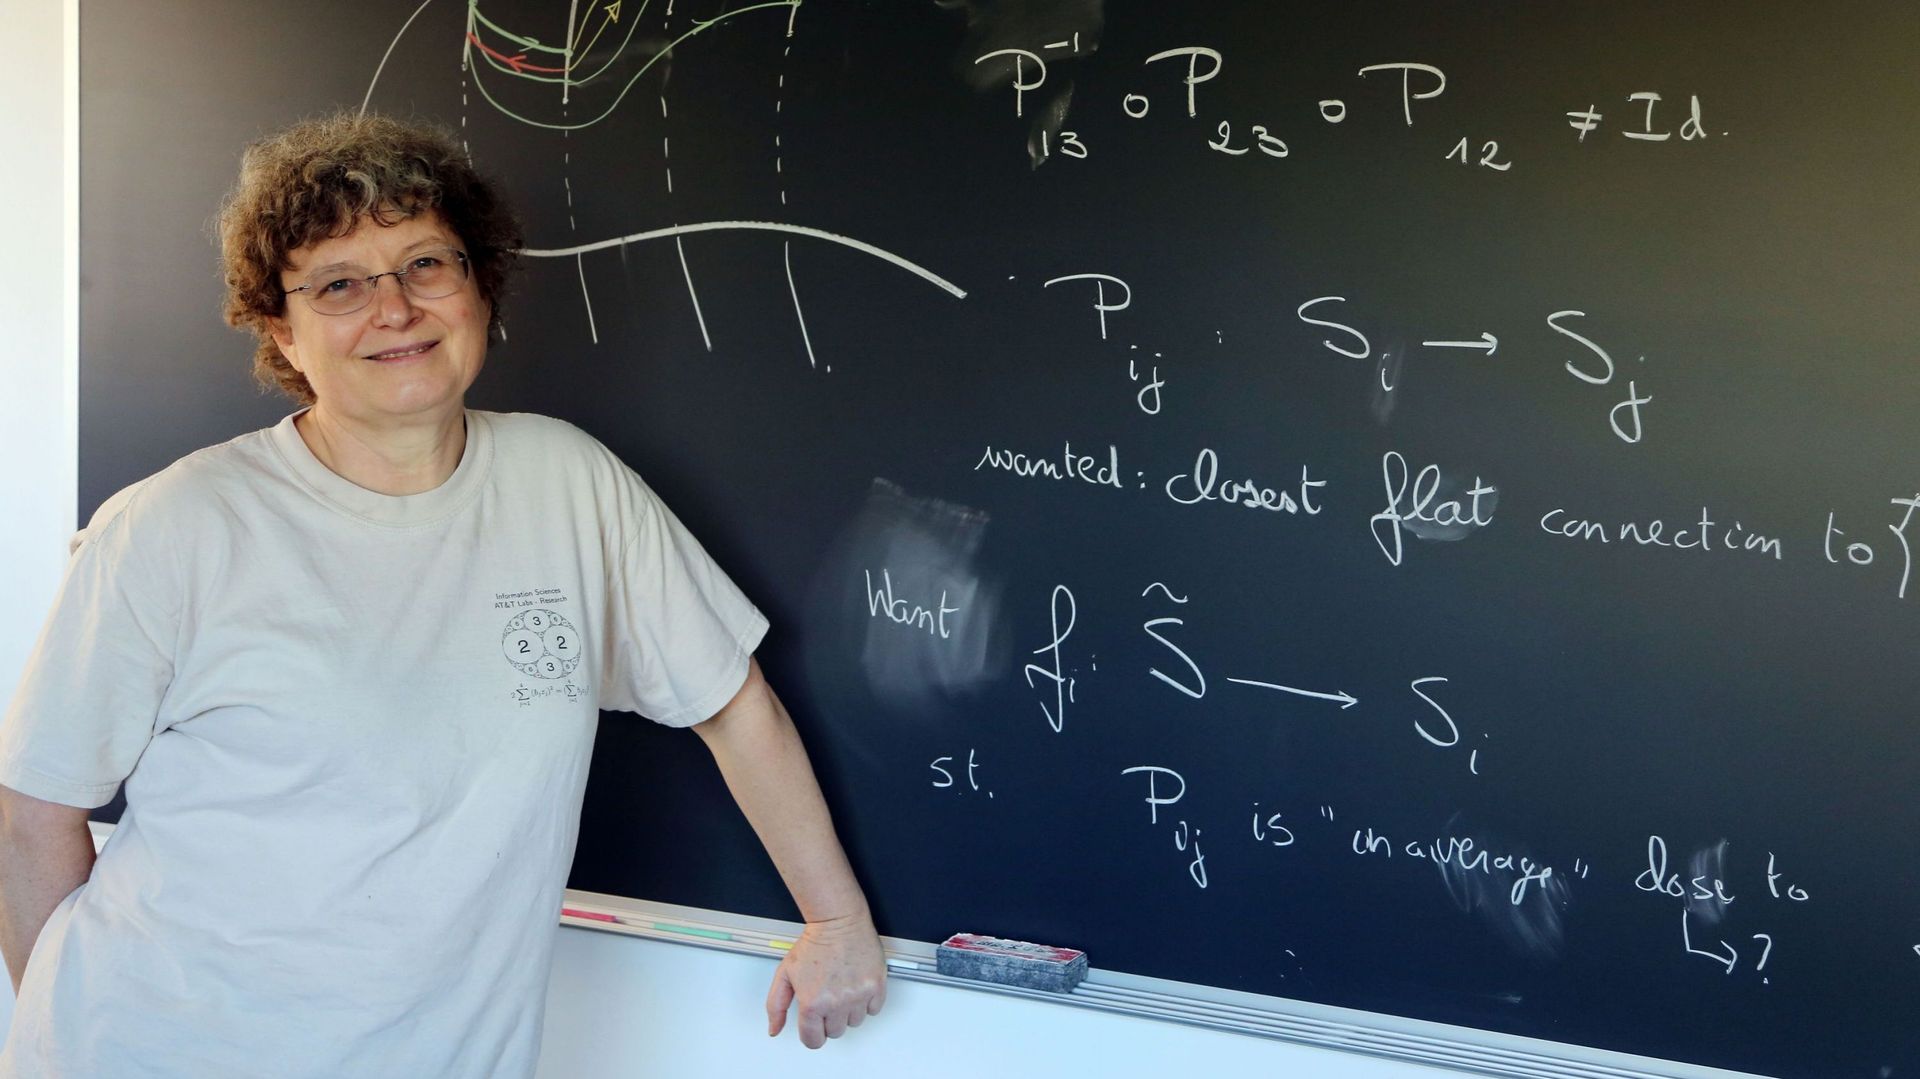 P₁₃⁻¹ ∘ P₂₃ ∘ P₁₂ ≠ Id.
Pᵢⱼ : Sᵢ → Sⱼ
wanted: closest flat connection to {
Want fᵢ : S̃ → Sᵢ
s.t. Pᵢⱼ is "on average" close to
↳ ?
Information Sciences
AT&T Labs - Research
6 3 6
2 2
6 3 6